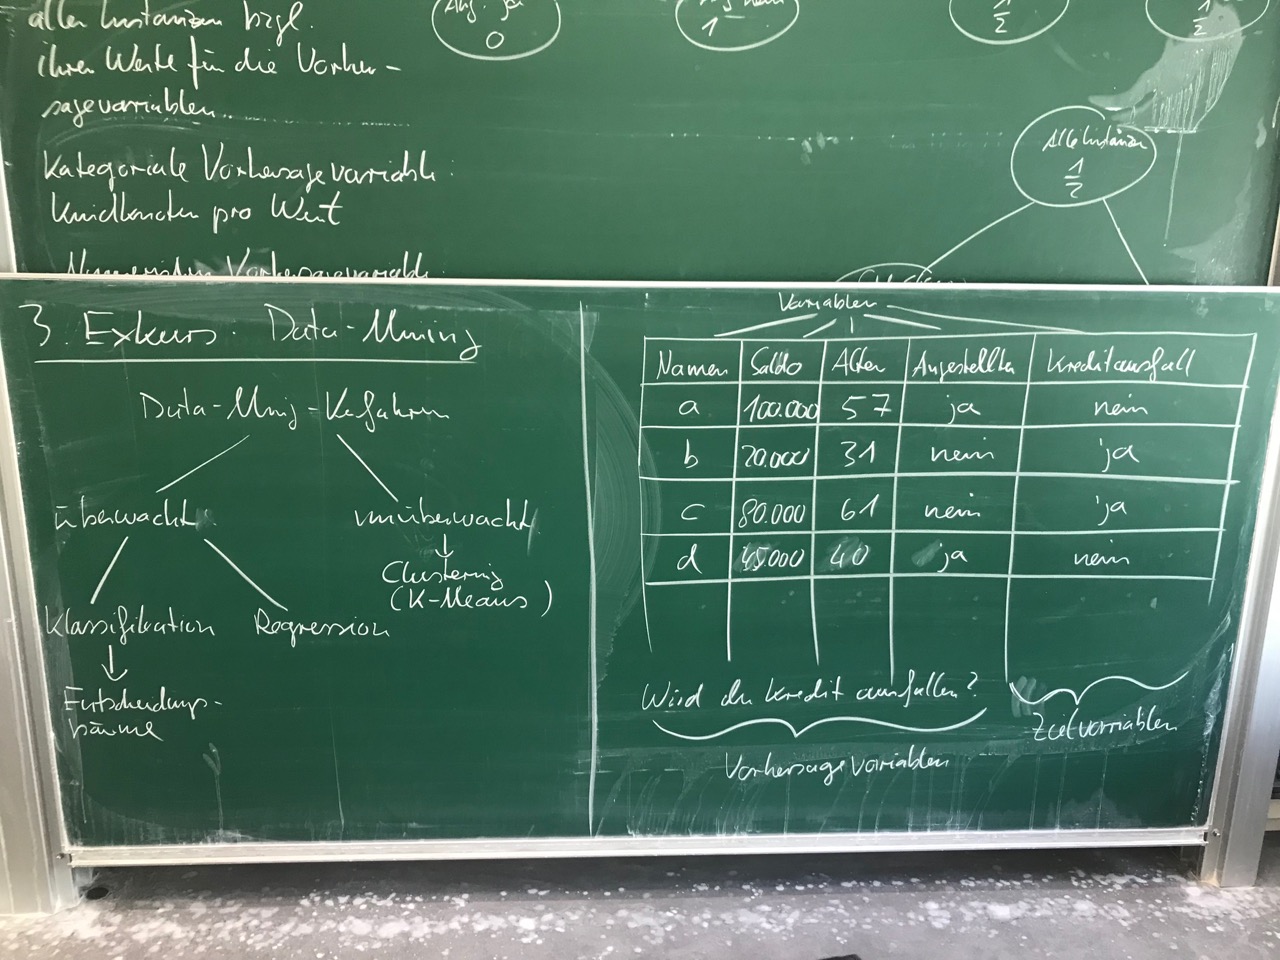 allen Instanzen bzgl.
ihrer Werte für die Vorher-
sagevariablen.
Kategoriale Vorhersagevariable:
Kindknoten pro Wert
Numerischen Vorhersagevariable:
Ang. ja
0
nein
1
1/2
1/2
Alle Instanzen
1/2
3. Exkurs: Data-Mining
Data-Ming-Verfahren
überwacht
unüberwacht
Clustering
(K-Means)
Klassifikation Regression
Entscheidungs-
bäume
Variablen
Namen Saldo Alter Angestellter Kreditausfall
a 100.000 57 ja nein
b 20.000 31 nein ja
c 80.000 61 nein ja
d 45.000 40 ja nein
Wird der Kredit ausfallen?
Vorhersagevariablen
Zielvariablen